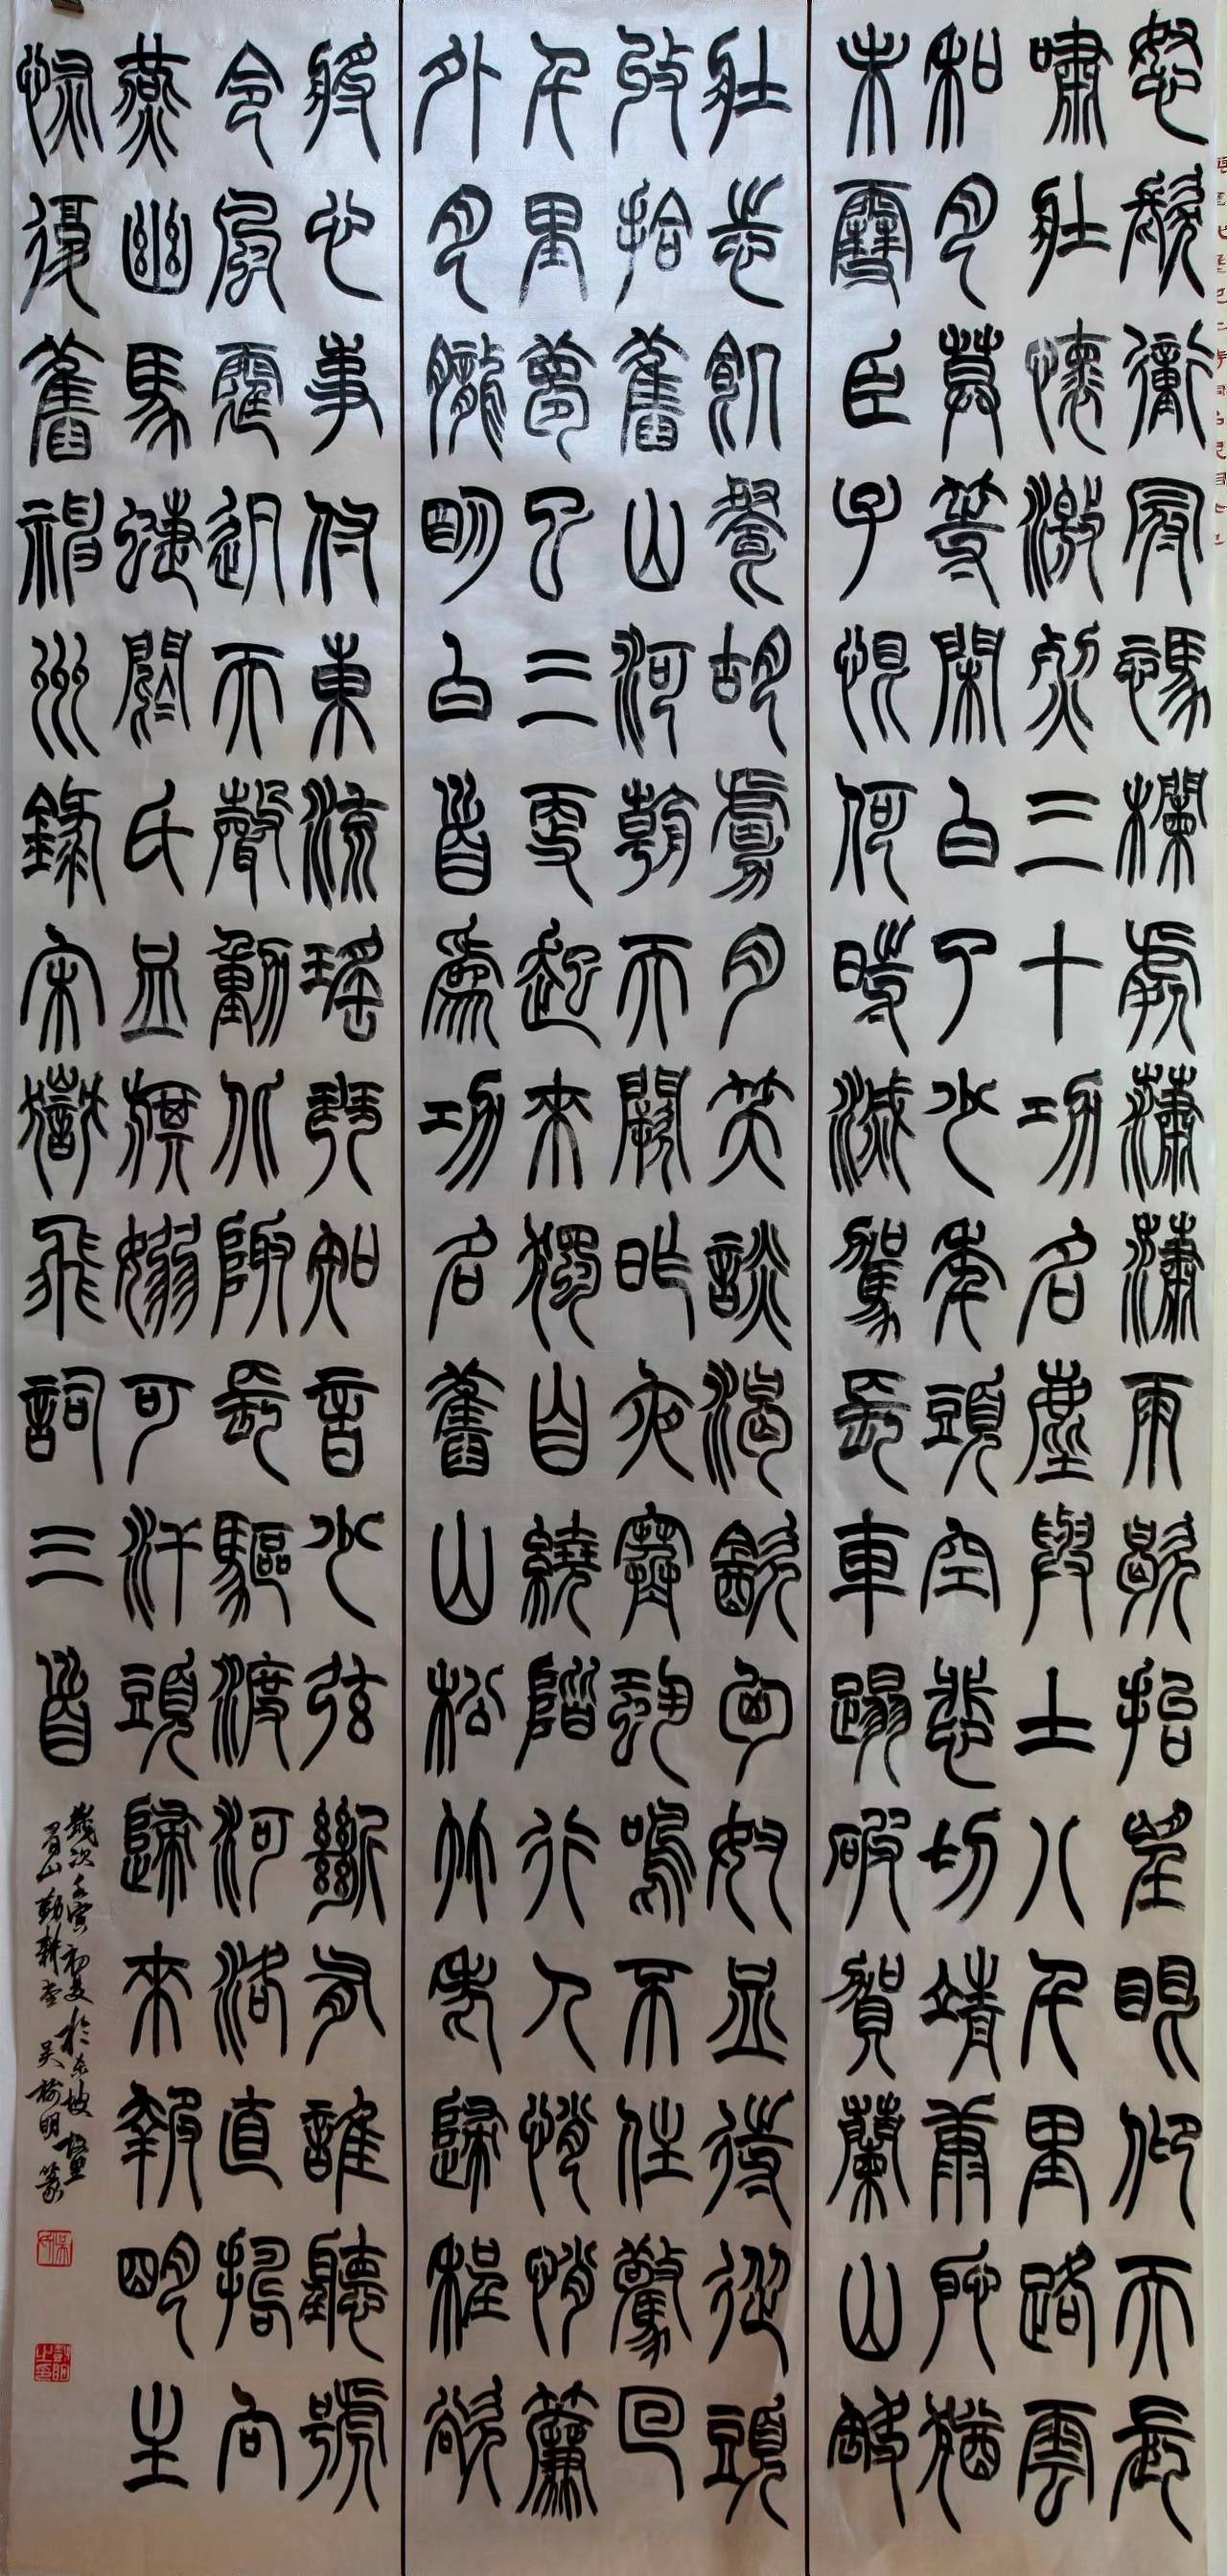 怒髮衝冠憑欄處瀟瀟雨歇抬望眼仰天長
嘯壯懷激烈三十功名塵與土八千里路雲
和月莫等閑白了少年頭空悲切靖康恥猶
未雪臣子恨何時滅駕長車踏破賀蘭山缺
壯志飢餐胡虜肉笑談渴飲匈奴血待從頭
收拾舊山河朝天闕昨夜寒蛩鳴不住驚回
千里夢已三更起來獨自繞階行人悄悄簾
外月朧明白首為功名舊山松竹老歸程欲
將心事付東流瑤琴知音少弦斷有誰聽號
令風霆迅天聲動北陬長驅渡河洛直搗向
燕幽馬蹀閼氏血旗嫋可汗頭歸來報明主
恢復舊神州錄宋嶽飛詞三首
歲次壬寅初夏於東坡
眉山勤耕堂吳樹明篆